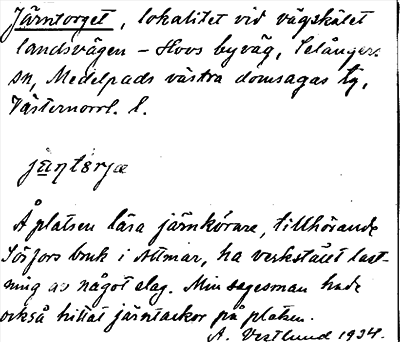 Järntorget, lokalitet vid vägskälet
landsvägen - Hovs byväg, Selångers
sn, Medelpads västra domsagas tg,
Västernorrl. l.
Å platsen lära järnkörare, tillhörande
Sörfors bruk i Attmar, ha verkstälet last-
ning av något slag. Min sagesman hade
också hittat järntackor på platsen.
A. Vestlund 1934.